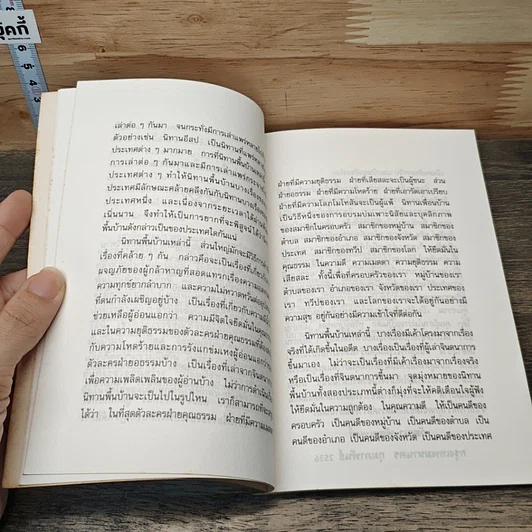 บุ๊คกี้
6 5 4 3
เล่าต่อ ๆ กันมา จนกระทั่งมีการเล่าแพร่หลาย
ตัวอย่างเช่น นิทานอีสป เป็นนิทานที่แพร่หลาย
ประเทศต่าง ๆ มากมาย การที่นิทานพื้นบ้าน
การเล่าต่อ ๆ กันมาและมีการเล่าแพร่
ทำให้นิทานพื้นบ้านบางเรื่อง
ประเทศมีลักษณะคล้ายคลึงกันกับนิทานพื้นบ้านบาง
ประเทศหนึ่ง และเนื่องจากระยะเวลาได้ผ่าน
เนิ่นนาน จึงทำให้เป็นการยากที่จะพิสูจน์ได้ว่า
พื้นบ้านดังกล่าวเป็นของประเทศใดกันแน่
นิทานพื้นบ้านเหล่านี้ ส่วนใหญ่มักจะมี
เรื่องที่คล้าย ๆ กัน กล่าวคือจะเป็นเรื่องที่เกี่ยวกับ
ผจญภัยของผู้กล้าหาญที่สอดแทรกเรื่องความ
ความทุกข์ยากลำบาก และความไม่หวาดหวั่นต่อ
ที่ตนกำลังเผชิญอยู่บ้าง เป็นเรื่องที่เกี่ยวกับความ
ช่วยเหลือผู้อ่อนแอกว่า ความมีจิตใจยึดมั่นใน
และในความยุติธรรมของตัวละครฝ่ายคุณธรรม
กับความโหดร้ายและการรังแกข่มเหงผู้อ่อนแอกว่าของ
ตัวละครฝ่ายอธรรมบ้าง เป็นเรื่องที่เล่าจากจินตนาการ
เพื่อความเพลิดเพลินของผู้อ่านบ้าง ไม่ว่าการดำเนิน
นิทานพื้นบ้านจะเป็นไปในรูปไหน เราก็สามารถที่จะ
ได้ว่า ในที่สุดตัวละครฝ่ายคุณธรรม ฝ่ายที่มีความเมตตา
ฝ่ายที่มีความยุติธรรม ฝ่ายที่เสียสละจะเป็นผู้ชนะ ส่วน
ฝ่ายอธรรม ฝ่ายที่มีความโหดร้าย ฝ่ายที่เอารัดเอาเปรียบ
ฝ่ายที่มีความโลภโมโทสันจะเป็นผู้แพ้ นิทานเพื่อนบ้าน
เป็นวิธีหนึ่งของการอบรมบ่มเพาะนิสัยและบุคลิกภาพ
ของสมาชิกในครอบครัว สมาชิกของหมู่บ้าน สมาชิกของ
ตำบล สมาชิกของอำเภอ สมาชิกของจังหวัด สมาชิกของ
ประเทศ สมาชิกของทวีป สมาชิกของโลก ให้ยึดมั่นใน
คุณธรรม ในความดี ความเมตตา ความยุติธรรม ความ
เสียสละ ทั้งนี้เพื่อที่ครอบครัวของเรา หมู่บ้านของเรา
ตำบลของเรา อำเภอของเรา จังหวัดของเรา ประเทศของ
เรา ทวีปของเรา และโลกของเราจะได้อยู่กันอย่างมี
ความสุข อยู่กันอย่างมีความเข้าใจที่ดีต่อกัน
นิทานพื้นบ้านเหล่านี้ บางเรื่องมีเค้าโครงมาจากเรื่อง
จริงที่ได้เกิดขึ้นในอดีต บางเรื่องเป็นเรื่องที่ผู้เล่าจินตนาการ
ขึ้นมาเอง ไม่ว่าจะเป็นเรื่องที่มีเค้าเรื่องมาจากเรื่องจริง
หรือเป็นเรื่องที่จินตนาการขึ้นมา จุดมุ่งหมายของนิทาน
พื้นบ้านทั้งสองประเภทนี้ต่างก็มุ่งที่จะให้คติเตือนใจผู้ฟัง
ให้ยึดมั่นในความถูกต้อง ในคุณความดี ให้เป็นคนดีของ
ครอบครัว เป็นคนดีของหมู่บ้าน เป็นคนดีของตำบล เป็น
คนดีของอำเภอ เป็นคนดีของจังหวัด เป็นคนดีของประเทศ